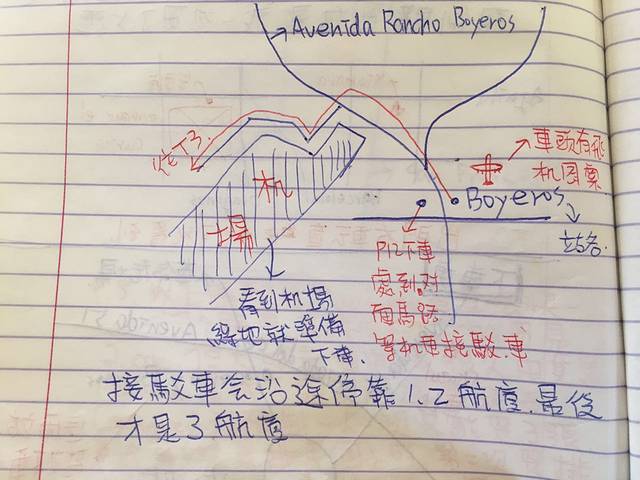 Avenida Rancho Boyeros
往T3.
機
場
車頭有飛
机圖案
Boyeros
站名
P12下車
處到对
面馬路
等机車接駁車
看到机場
綠地就準備
下車.
接駁車会沿途停靠1.2航廈.最後
才是3航廈